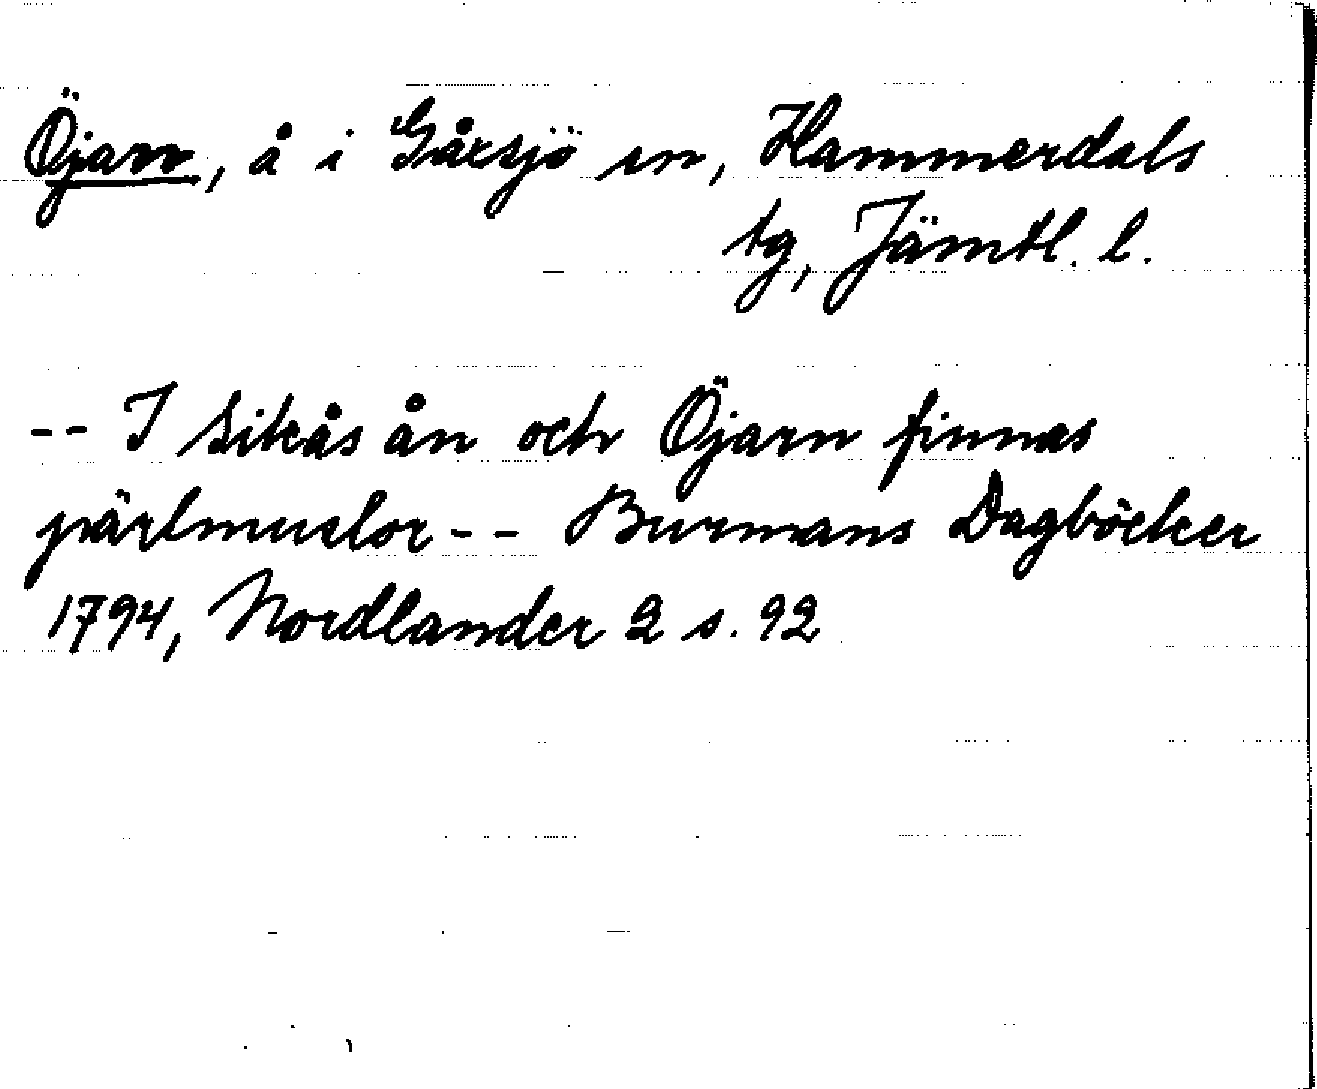 Öjarn, å i Gåxsjö sn, Hammerdals
tg, Jämtl. l.
-- I Sikås ån och Öjarn finnas
pärlmuslor -- Burmans Dagböcker
1794, Nordlander 2 s. 92